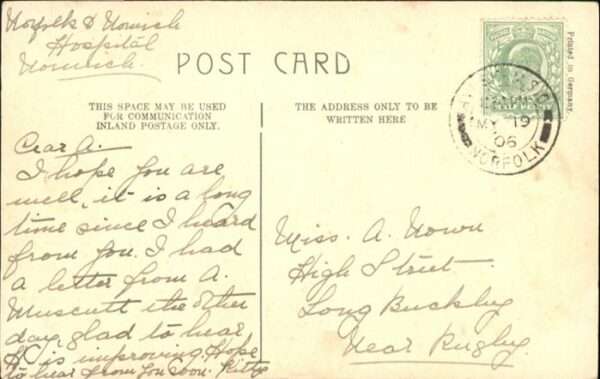 Norfolk & Norwich
Hospital
Norwich.
POST CARD
Printed in Germany.
THIS SPACE MAY BE USED
FOR COMMUNICATION
INLAND POSTAGE ONLY.
THE ADDRESS ONLY TO BE
WRITTEN HERE
MY 19
06
NORFOLK
Dear A.
I hope you are
well, it is a long
time since I heard
from you. I had
a letter from A.
Muscutt the other
day, glad to hear
is improving. Hope
to hear from you soon. Kitty
Miss. A. Nown
High Street
Long Buckby
Near Rugby.